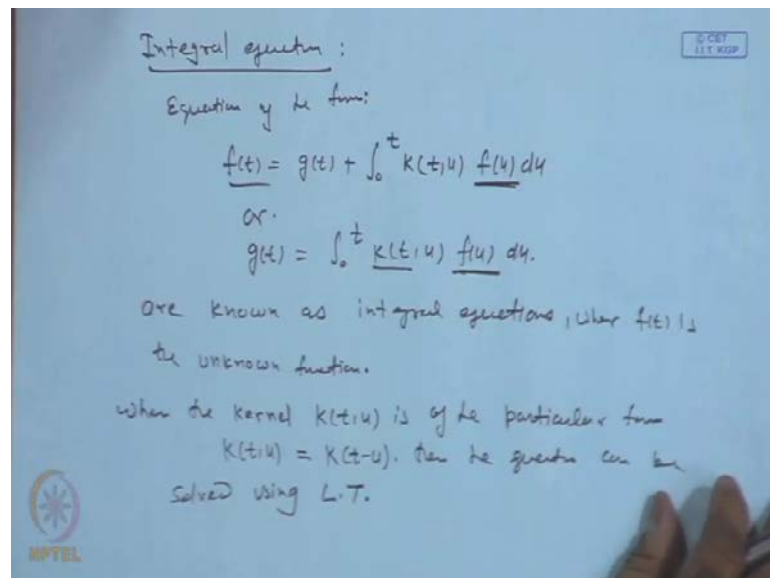 Integral equation :
© CET
I.I.T. KGP
Equation of the form:
f(t) = g(t) + ∫₀ᵗ K(t,u) f(u) du
or.
g(t) = ∫₀ᵗ K(t,u) f(u) du.
are known as integral equations, where f(t) is
the unknown function.
when the kernel K(t,u) is of the particular form
K(t,u) = K(t-u). then the equation can be
solved using L.T.
NPTEL